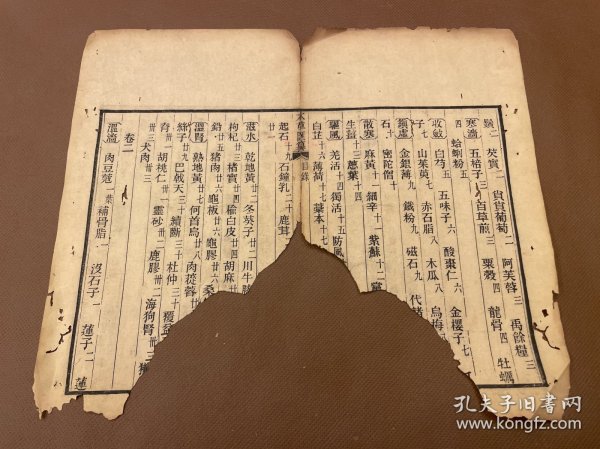 二 芡實二 賁貲葡萄二 阿芙蓉三 禹餘糧三
寒濇 五棓子三 百草煎三 粟殼四 龍骨四 牡蠣
四 蛤蜊粉五
收斂 白芍五 五味子六 酸棗仁六 金櫻子七
子七 山茱萸七 赤石脂八 木瓜八 烏梅
鎭虛 金銀薄九 鐵粉九 磁石九 代赭
石十 密陀僧十
散寒 麻黃十 細辛十一 紫蘇十二
生薑十三 蔥葉十四
驅風 羌活十四 獨活十五 防風
白芷十六 薄荷十七 藁本十七
目錄
起石十九 石鐘乳二十 鹿茸
廿一
滋水 乾地黃廿二 冬葵子廿二 川牛膝
枸杞廿三 楮實廿三 榆白皮廿四 胡麻廿四
鉛廿五 猪肉廿五 龜板廿六 龜膠廿六 桑
溫腎 熟地黃廿七 何首烏廿八 肉蓯蓉廿八
絲子廿九 巴戟天三十 續斷三十 杜仲三十 覆盆
骨卅一 胡桃仁卅一 靈砂卅二 鹿膠卅二 海狗腎卅三
卅三 犬肉卅三
卷二
溫濇 肉豆蔻一葉 補骨脂一 沒石子二 蓮子二 蓮
孔夫子旧书网
www.kongfz.com